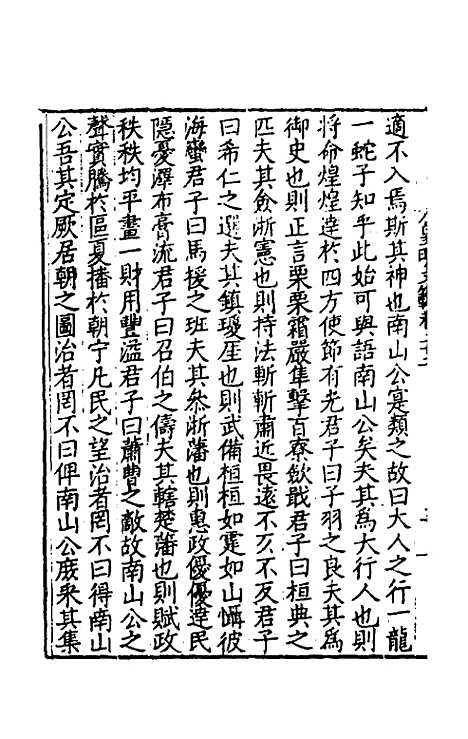 適不入焉斯其神也南山公寔類之故曰大人之行一龍
一蛇子知乎此始可與語南山公矣夫其為大行人也則
將命煌煌達於四方使節有光君子曰子羽之良夫其為
御史也則正言栗栗霜嚴隼擊百寮歛戢君子曰桓典之
匹夫其僉浙憲也則持法斬斬肅近畏遠不亢不反君子
曰希仁之選夫其鎮瓊厓也則武備桓桓如霆如山懾彼
海蠻君子曰馬援之班夫其叅浙藩也則惠政優優達民
隱憂澤布膏流君子曰召伯之儔夫其轄楚藩也則賦政
秩秩均平畫一財用豐溢君子曰蕭曹之敵故南山公之
聲實騰於區夏播於朝宁凡民之望治者罔不曰得南山
公吾其定厥居朝之圖治者罔不曰俾南山公庶来其集